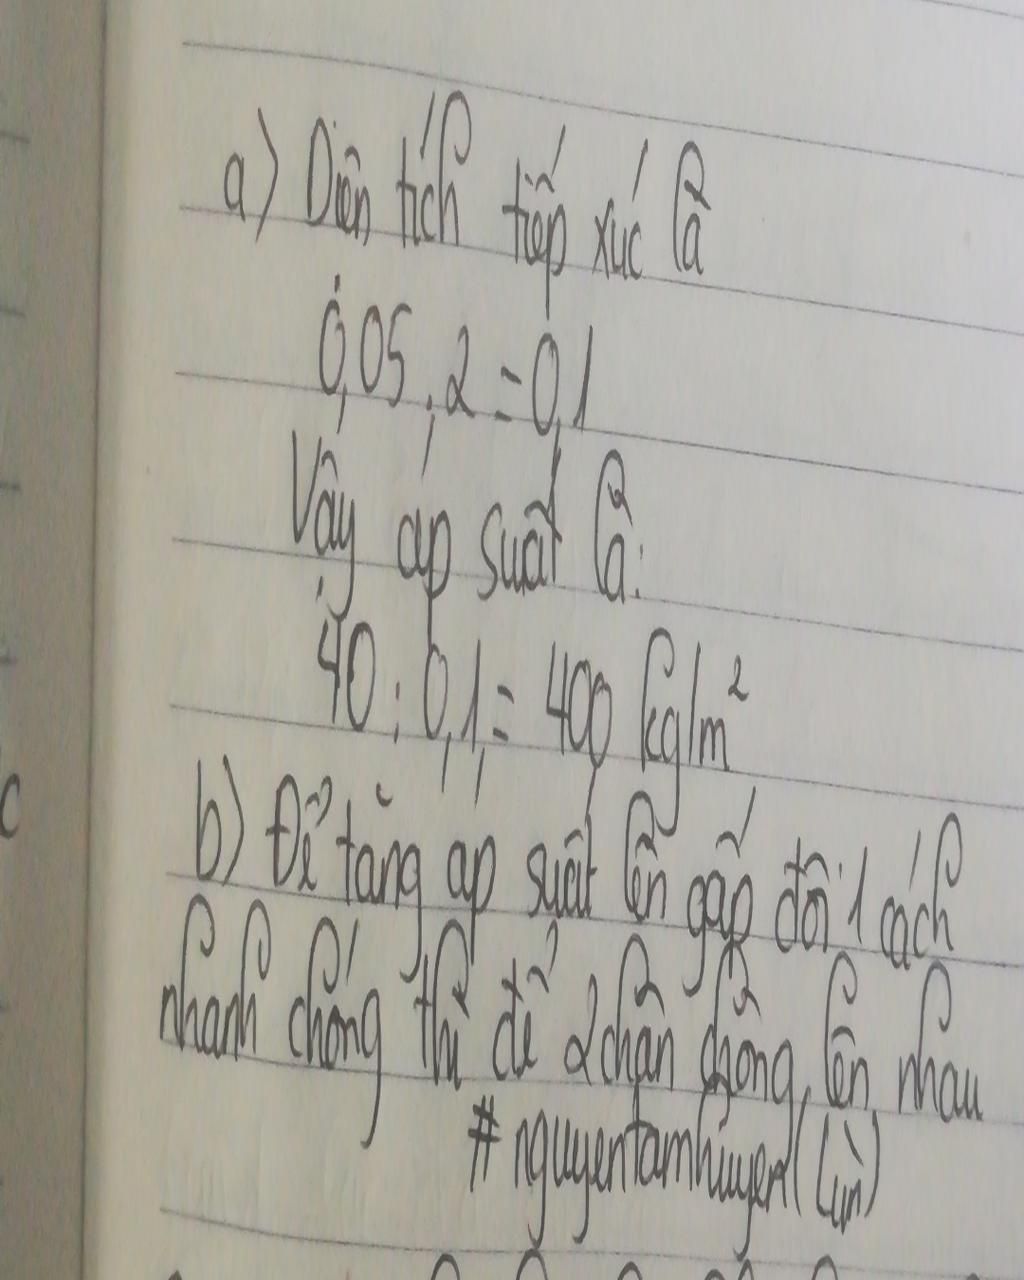 a) Diện tích tiếp xúc là
0,05 . 2 = 0,1
Vậy áp suất là:
40 : 0,1 = 400 kg/m²
b) Để tăng áp suất lên gấp đôi 1 cách
nhanh chóng thì để 2 chân chồng lên nhau
#nguyentamhuyen (Lùn)